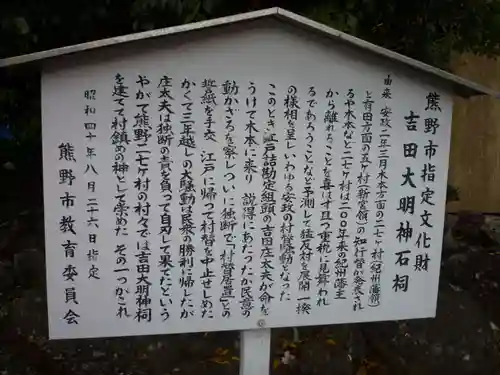 熊野市指定文化財
吉田大明神石祠
由来 安政二年三月木本方面の二七ケ村(紀州藩領)
と有田方面の五ケ村(新宮領)の知行替が発表され
るや木本など二七ケ村は二〇〇年来の紀州藩主
から離れることを喜ばず且つ重税に見舞われ
るであろうことなど予測して猛反対を展開一揆
の様相を呈しいわゆる安政の村替騒動となった
このとき江戸詰勘定組頭の吉田庄太夫が命を
うけて木本に来り説得にあたったが民意の
動かざるを察しついに独断で「村替居置」との
誓紙を手交 江戸に帰って村替を中止せしめた
かくて三年越しの大騒動は民衆の勝利に帰したが
庄太夫は独断の責を負って自刃して果てたという
やがて熊野二七ケ村の村々では吉田大明神祠
を建てて村鎮めの神として崇めた その一つがこれ
昭和四十年八月二十六日指定
熊野市教育委員会